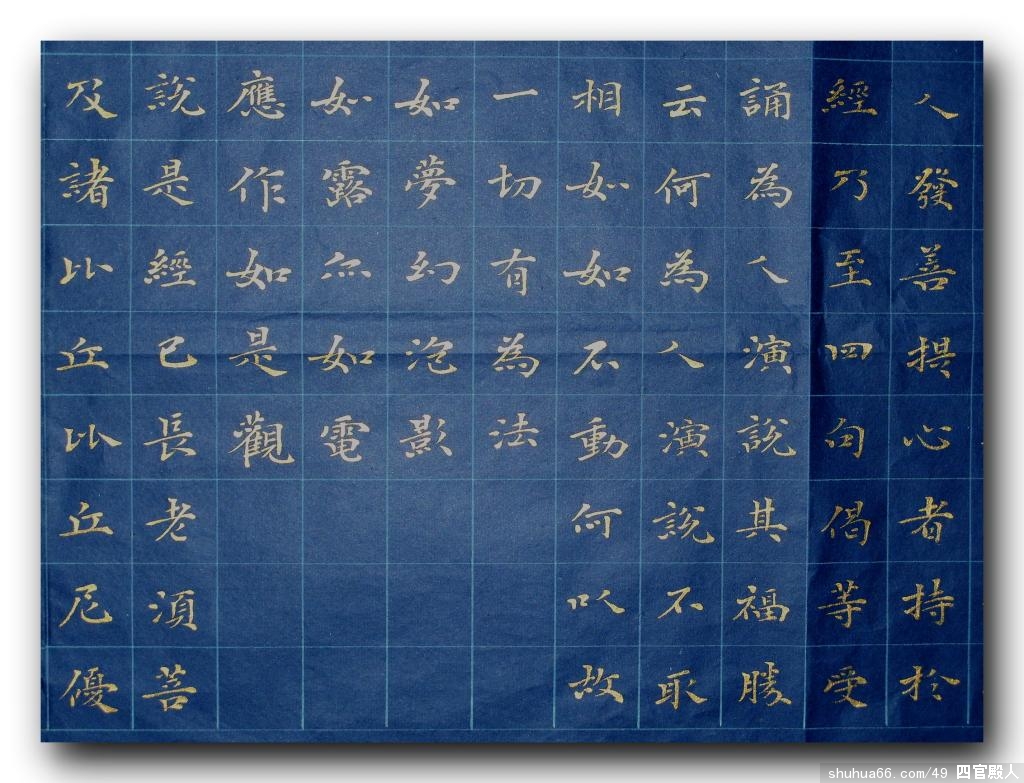 人發善提心者持於
經乃至四句偈等受
誦為人演說其福勝
云何為人演說不取
相如如不動何以故
一切有為法
如夢幻泡影
如露亦如電
應作如是觀
說是經已長老須菩
及諸比丘比丘尼優
shuhua66.com/49 四官殿人